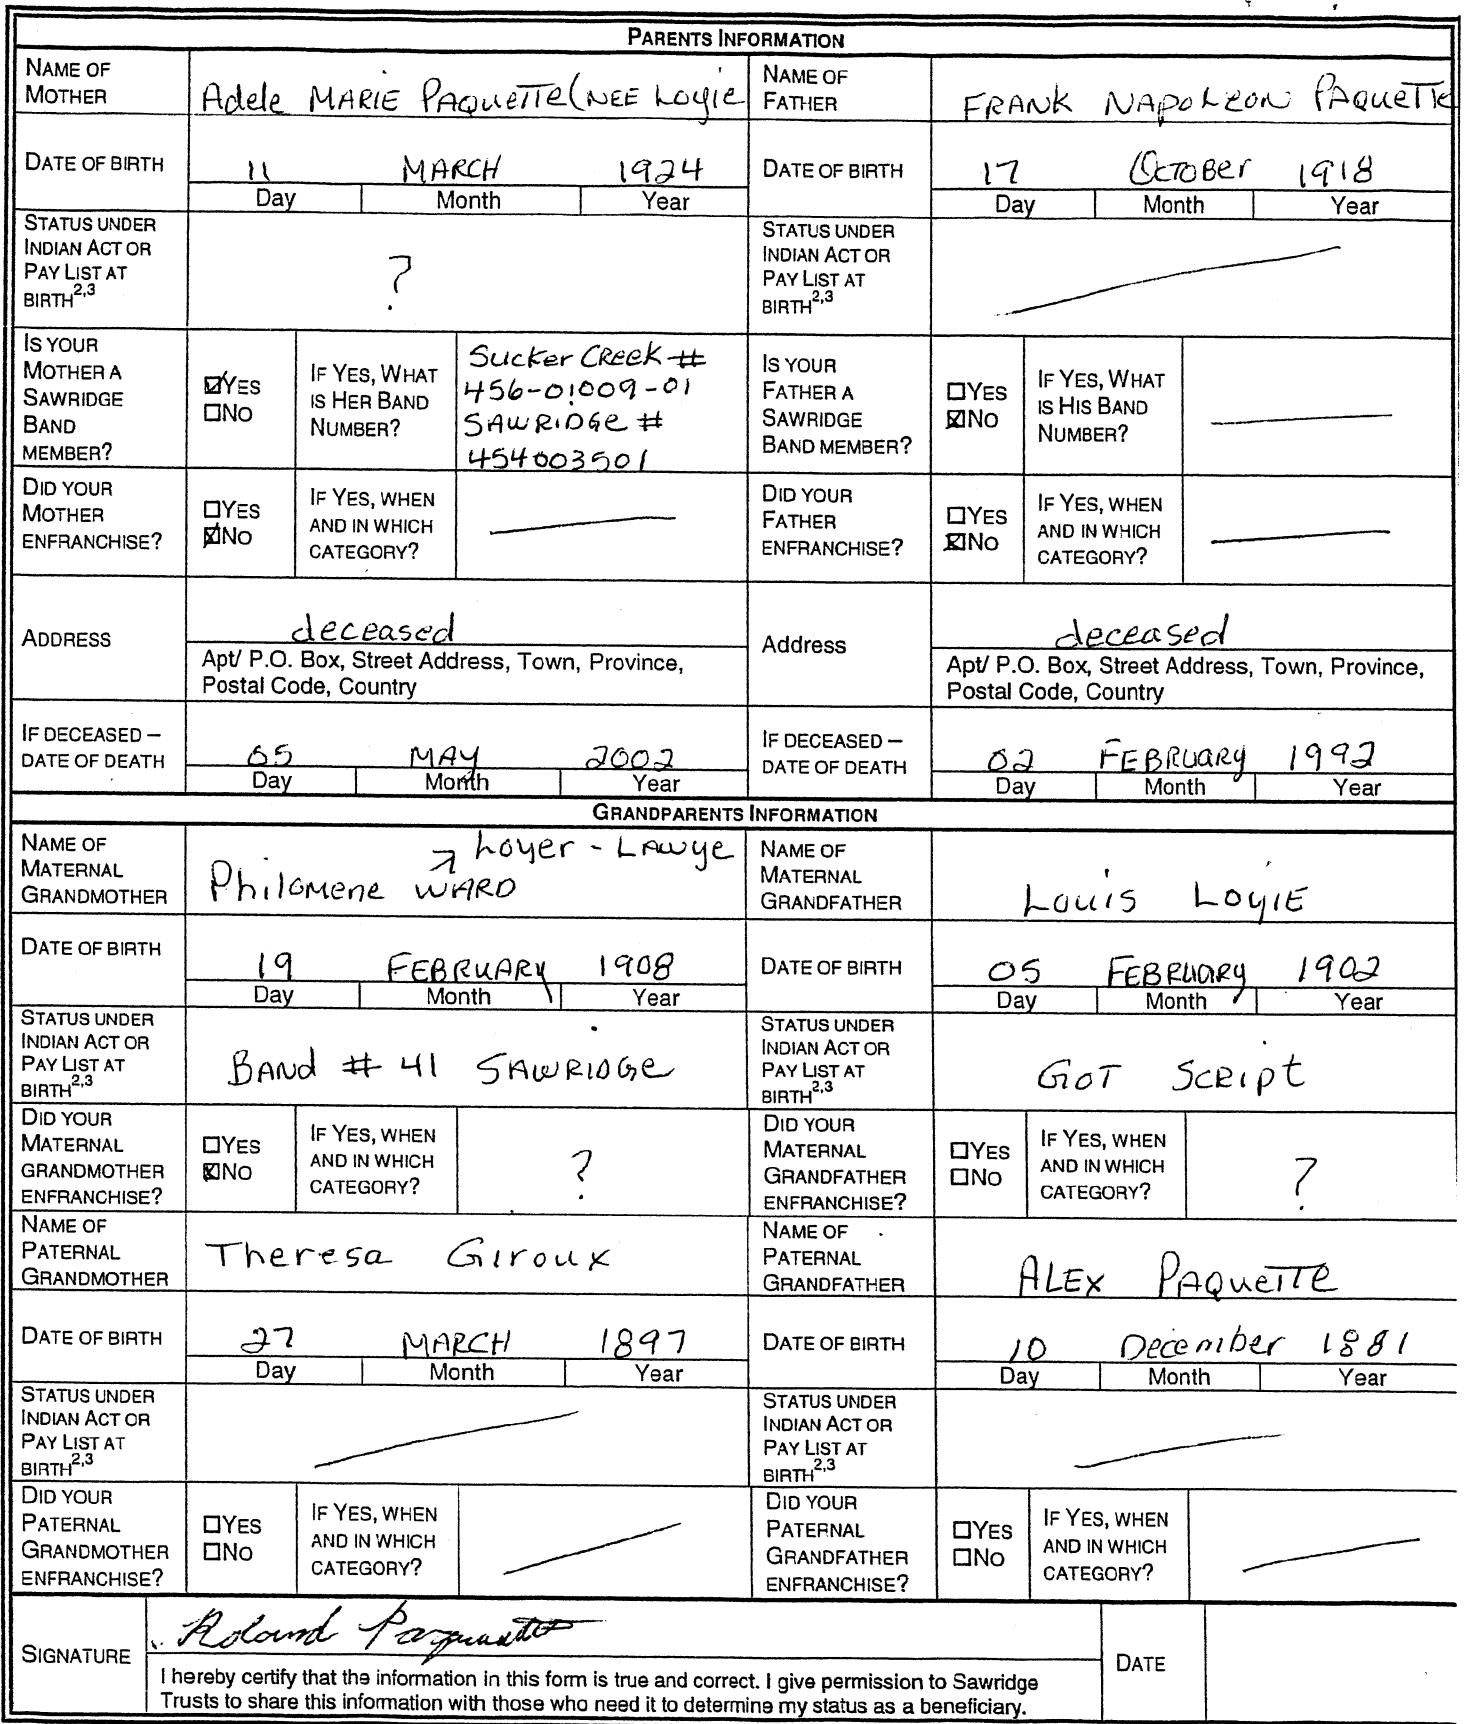 PARENTS INFORMATION
NAME OF MOTHER
Adele MARIE PAQUETTE (NEE Loyie
NAME OF FATHER
FRANK NAPOLEON PAQUETTE
DATE OF BIRTH
11 MARCH 1924
Day Month Year
DATE OF BIRTH
17 OCTOBER 1918
Day Month Year
STATUS UNDER
INDIAN ACT OR
PAY LIST AT
BIRTH2,3
?
STATUS UNDER
INDIAN ACT OR
PAY LIST AT
BIRTH2,3
IS YOUR
MOTHER A
SAWRIDGE
BAND
MEMBER?
☑YES
☐NO
IF YES, WHAT
IS HER BAND
NUMBER?
Sucker CREEK #
456-01009-01
SAWRIDGE #
454003501
IS YOUR
FATHER A
SAWRIDGE
BAND MEMBER?
☐YES
☒NO
IF YES, WHAT
IS HIS BAND
NUMBER?
DID YOUR
MOTHER
ENFRANCHISE?
☐YES
☒NO
IF YES, WHEN
AND IN WHICH
CATEGORY?
DID YOUR
FATHER
ENFRANCHISE?
☐YES
☒NO
IF YES, WHEN
AND IN WHICH
CATEGORY?
ADDRESS
deceased
Apt/ P.O. Box, Street Address, Town, Province,
Postal Code, Country
Address
deceased
Apt/ P.O. Box, Street Address, Town, Province,
Postal Code, Country
IF DECEASED –
DATE OF DEATH
05 MAY 2002
Day Month Year
IF DECEASED –
DATE OF DEATH
02 FEBRUARY 1992
Day Month Year
GRANDPARENTS INFORMATION
NAME OF
MATERNAL
GRANDMOTHER
Loyer - Lawye
Philomene WARD
NAME OF
MATERNAL
GRANDFATHER
Louis LoyIE
DATE OF BIRTH
19 FEBRUARY 1908
Day Month Year
DATE OF BIRTH
05 FEBRUARY 1902
Day Month Year
STATUS UNDER
INDIAN ACT OR
PAY LIST AT
BIRTH2,3
BAND # 41 SAWRIDGE
STATUS UNDER
INDIAN ACT OR
PAY LIST AT
BIRTH2,3
GOT SCRIPT
DID YOUR
MATERNAL
GRANDMOTHER
ENFRANCHISE?
☐YES
☒NO
IF YES, WHEN
AND IN WHICH
CATEGORY?
?
DID YOUR
MATERNAL
GRANDFATHER
ENFRANCHISE?
☐YES
☐NO
IF YES, WHEN
AND IN WHICH
CATEGORY?
?
NAME OF
PATERNAL
GRANDMOTHER
Theresa Giroux
NAME OF
PATERNAL
GRANDFATHER
ALEX PAQUETTE
DATE OF BIRTH
27 MARCH 1897
Day Month Year
DATE OF BIRTH
10 December 1881
Day Month Year
STATUS UNDER
INDIAN ACT OR
PAY LIST AT
BIRTH2,3
STATUS UNDER
INDIAN ACT OR
PAY LIST AT
BIRTH2,3
DID YOUR
PATERNAL
GRANDMOTHER
ENFRANCHISE?
☐YES
☐NO
IF YES, WHEN
AND IN WHICH
CATEGORY?
DID YOUR
PATERNAL
GRANDFATHER
ENFRANCHISE?
☐YES
☐NO
IF YES, WHEN
AND IN WHICH
CATEGORY?
SIGNATURE
Roland Paquette
I hereby certify that the information in this form is true and correct. I give permission to Sawridge
Trusts to share this information with those who need it to determine my status as a beneficiary.
DATE